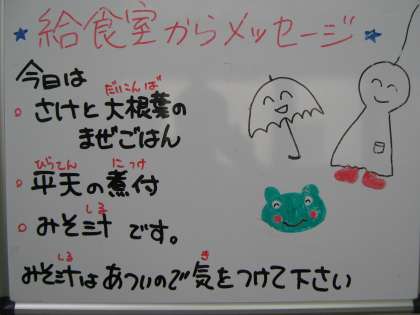 ★給食室からメッセージ★
今日は
だいこんば
○さけと大根葉の
まぜごはん
ひらてん につけ
○平天の煮付
しる
○みそ汁です。
しる き
みそ汁はあついので気をつけて下さい